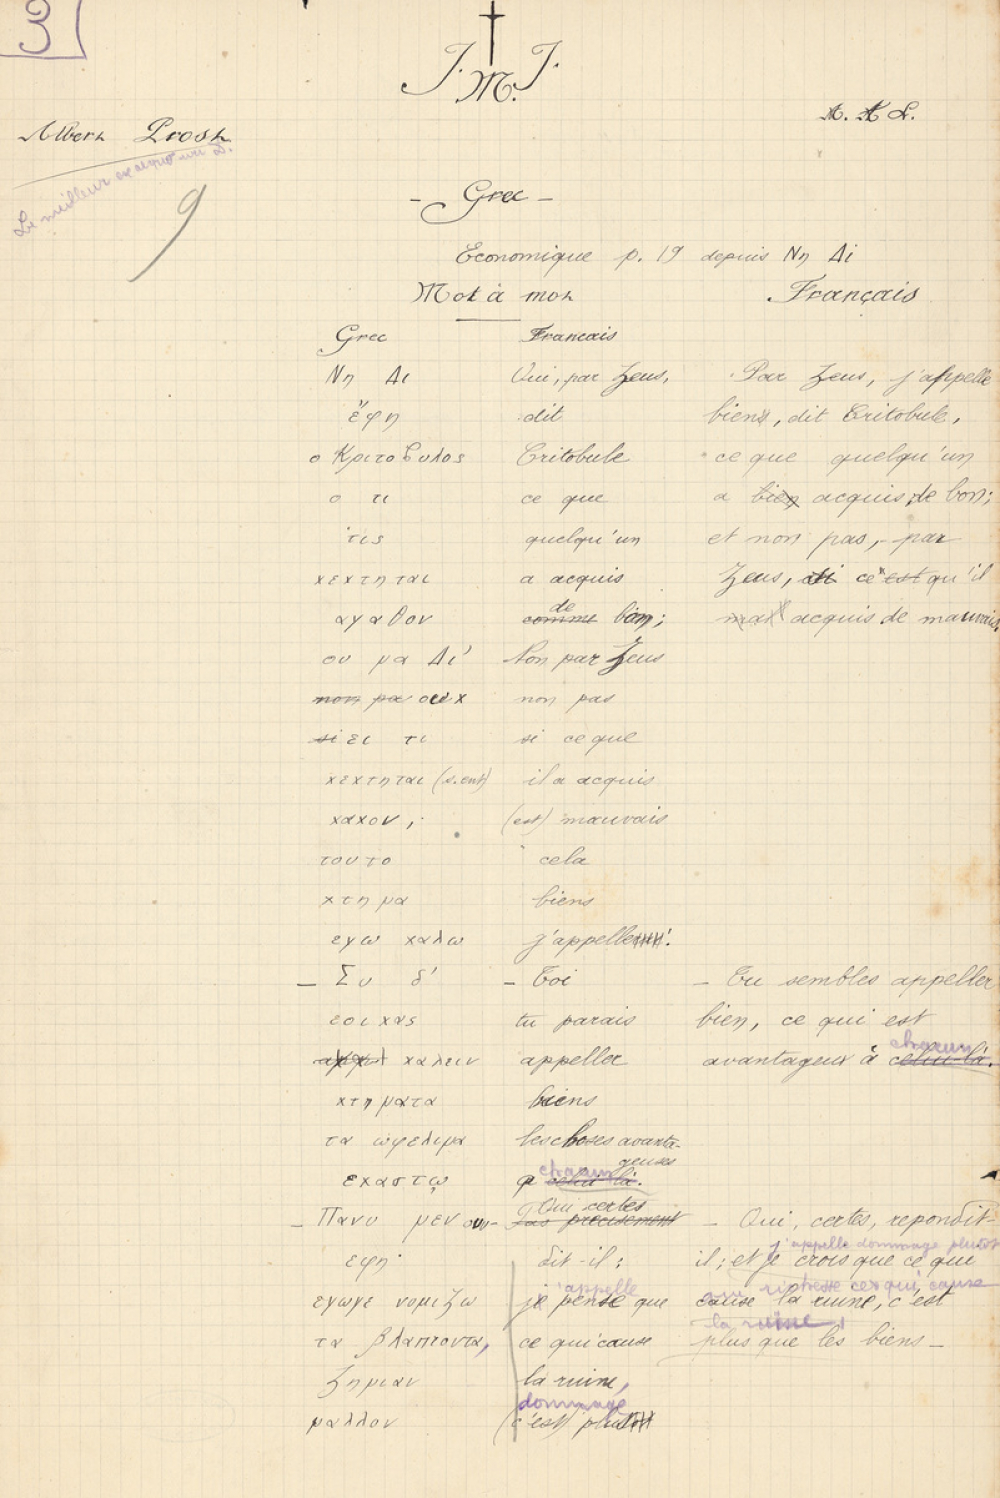 3
J. M. J.
A. A. L.
Albert Prost
Le meilleur
9
- Grec -
Economique p. 19 depuis Νη Δι
Mot à mot Français
Grec Francais
Νη Δι Oui, par Zeus, Par Zeus, j'appelle
ἔφη dit biens, dit Critobule,
ο Κριτοβυλος Critobule ce que quelqu'un
ο τι ce que a bien acquis de bon;
τις quelqu'un et non pas, par
κεκτηται a acquis Zeus, si ce est qu'il
αγαθον comme de bon; mal acquis de mauvais.
ου μα Δι' Non par Zeus
non pa ουκ non pas
si ει τι si ce que
κεκτηται (s.ent) il a acquis
κακον, (est) mauvais
τουτο cela
κτημα biens
εγω καλω j'appelle
- Συ δ' - Toi - Tu sembles appeller
εοικας tu parais bien, ce qui est
καλειν appeller avantageux à celui-là. chacun
κτηματα biens
τα ωφελιμα les choses avanta-
geuses
εκαστῳ à celui là. chacun
- Πανυ μεν ουν - Pas précisement Oui certes - Oui, certes, repondit-
εφη· dit-il; il; et je crois que ce qui
j'appelle dommage plutot
εγωγε νομιζω je pense que j'appelle cause la ruine, c'est
ce qui cause
la ruine
τα βλαπτοντα, ce qui cause plus que les biens -
ζημιαν la ruine, dommage
μαλλον (c'est) plutôt